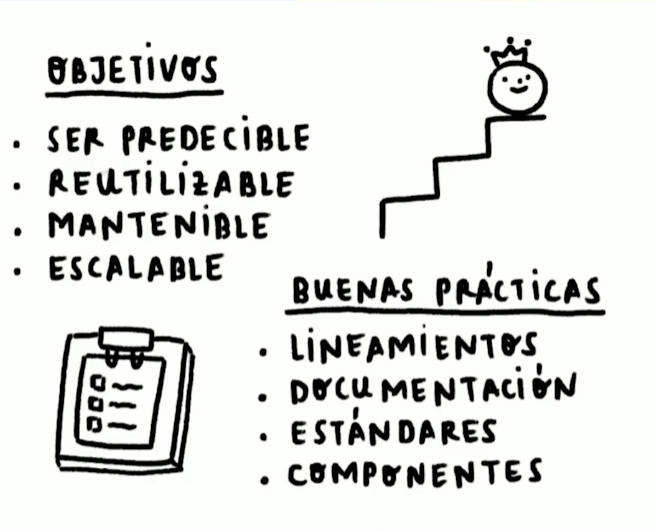 OBJETIVOS
· SER PREDECIBLE
· REUTILIZABLE
· MANTENIBLE
· ESCALABLE
BUENAS PRÁCTICAS
· LINEAMIENTOS
· DOCUMENTACIÓN
· ESTÁNDARES
· COMPONENTES